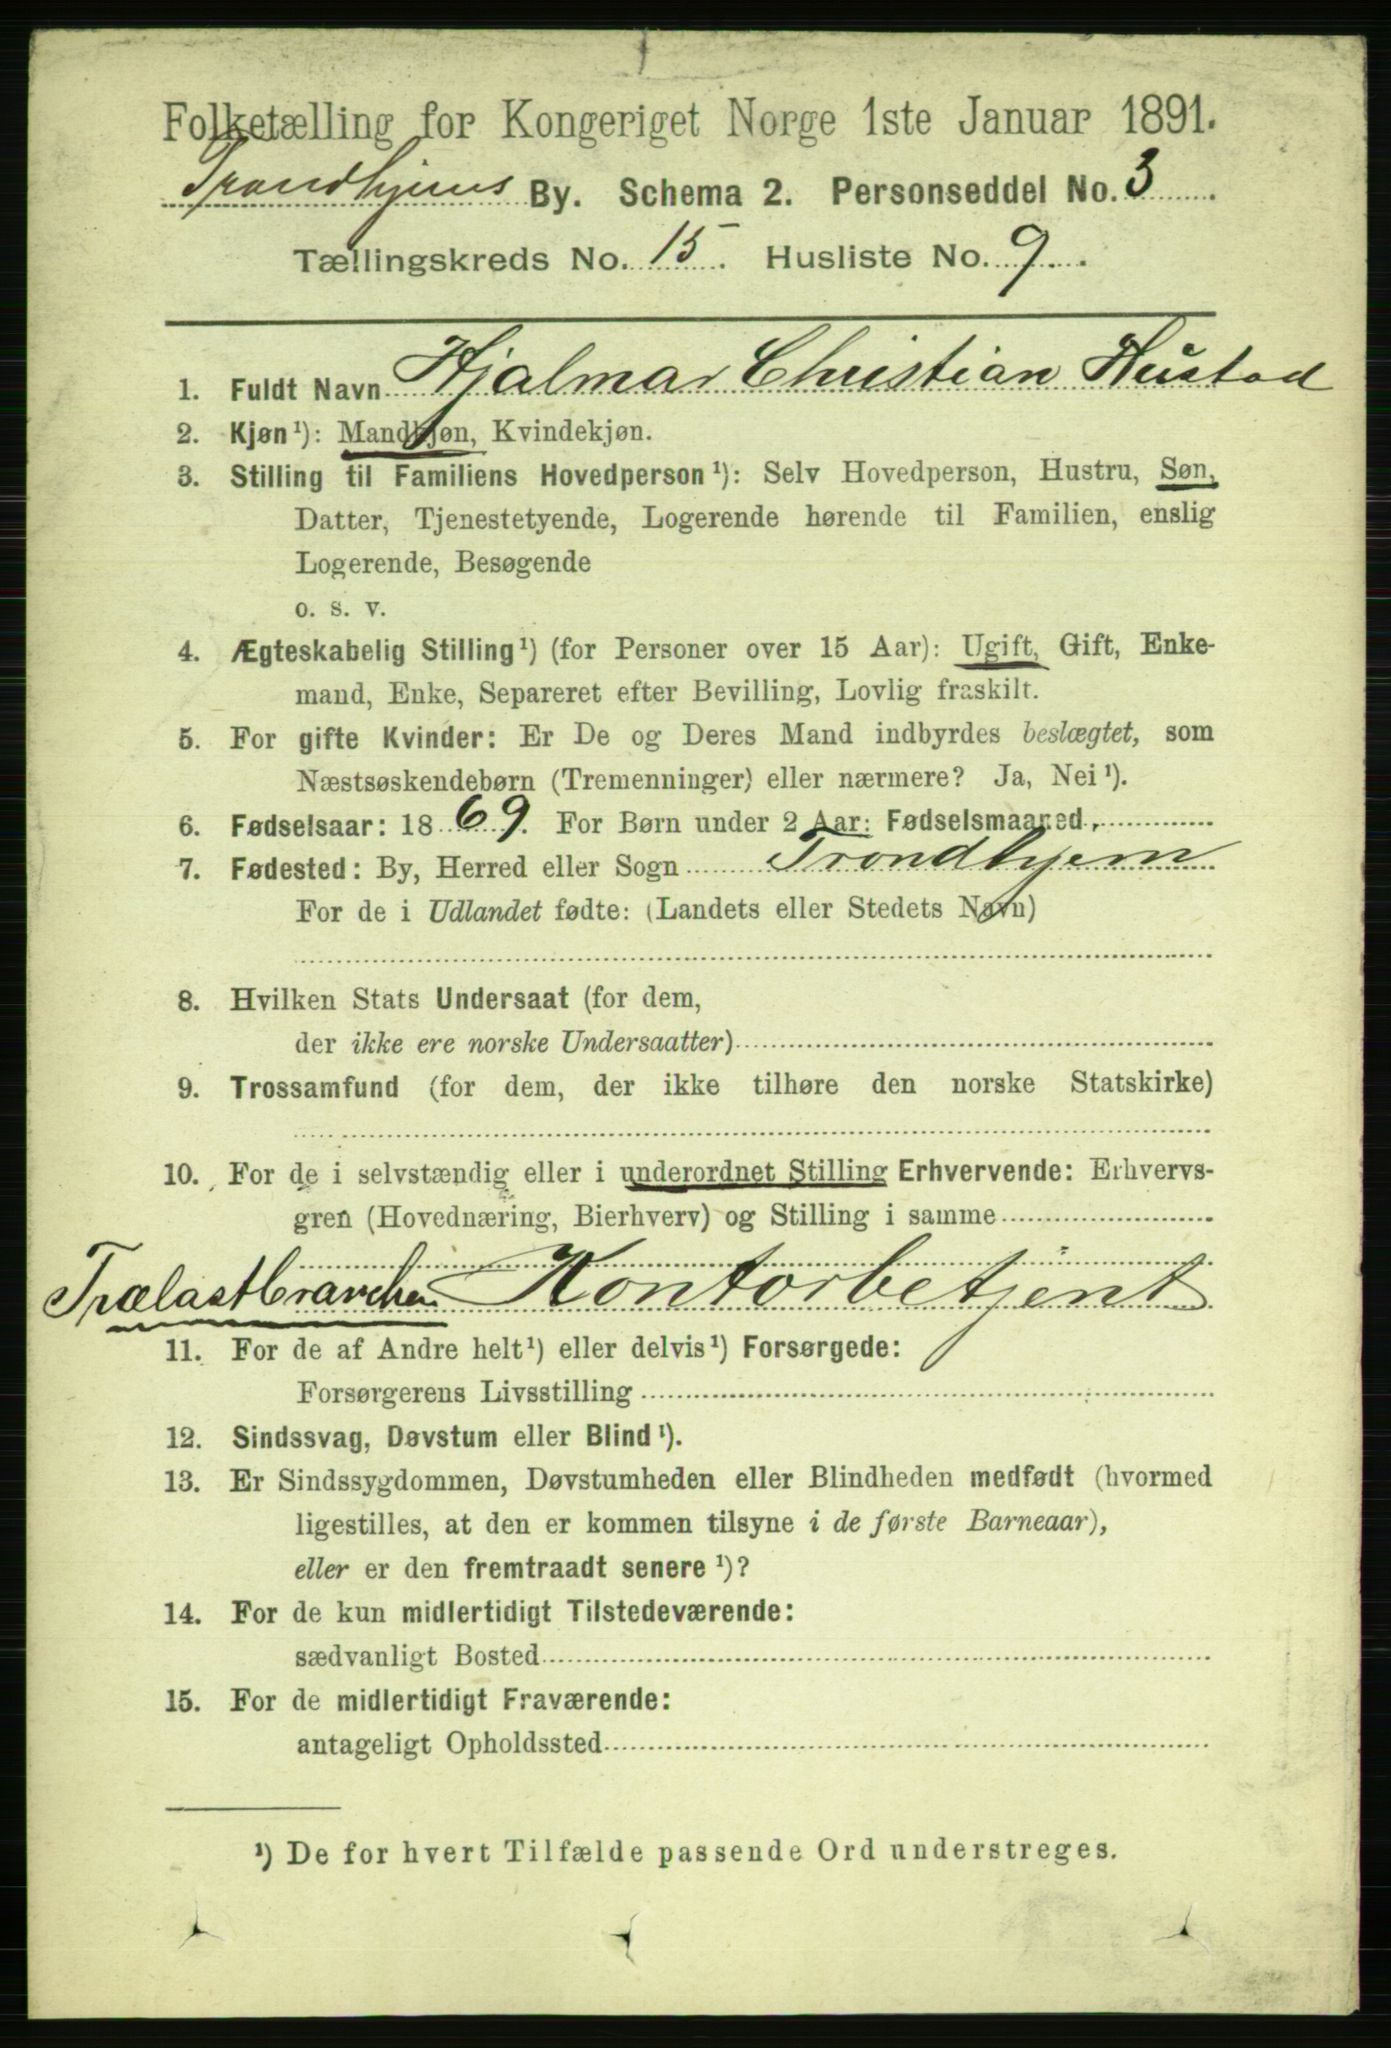 Folketælling for Kongeriget Norge 1ste Januar 1891.
Trondhjems By. Schema 2. Personseddel No. 3
Tællingskreds No. 15. Husliste No. 9.
1. Fuldt Navn Hjalmar Christian Hustad
2. Kjøn¹): Mandkjøn, Kvindekjøn.
3. Stilling til Familiens Hovedperson¹): Selv Hovedperson, Hustru, Søn,
Datter, Tjenestetyende, Logerende hørende til Familien, enslig
Logerende, Besøgende
o. s. v.
4. Ægteskabelig Stilling¹) (for Personer over 15 Aar): Ugift, Gift, Enke-
mand, Enke, Separeret efter Bevilling, Lovlig fraskilt.
5. For gifte Kvinder: Er De og Deres Mand indbyrdes beslægtet, som
Næstsøskendebørn (Tremenninger) eller nærmere? Ja, Nei¹).
6. Fødselsaar: 1869. For Børn under 2 Aar: Fødselsmaaned.
7. Fødested: By, Herred eller Sogn Trondhjem
For de i Udlandet fødte: (Landets eller Stedets Navn)
8. Hvilken Stats Undersaat (for dem,
der ikke ere norske Undersaatter)
9. Trossamfund (for dem, der ikke tilhøre den norske Statskirke)
10. For de i selvstændig eller i underordnet Stilling Erhvervende: Erhvervs-
gren (Hovednæring, Bierhverv) og Stilling i samme
Trælastbranchen Kontorbetjent
11. For de af Andre helt¹) eller delvis¹) Forsørgede:
Forsørgerens Livsstilling
12. Sindssvag, Døvstum eller Blind¹).
13. Er Sindssygdommen, Døvstumheden eller Blindheden medfødt (hvormed
ligestilles, at den er kommen tilsyne i de første Barneaar),
eller er den fremtraadt senere¹)?
14. For de kun midlertidigt Tilstedeværende:
sædvanligt Bosted
15. For de midlertidigt Fraværende:
antageligt Opholdssted
¹) De for hvert Tilfælde passende Ord understreges.